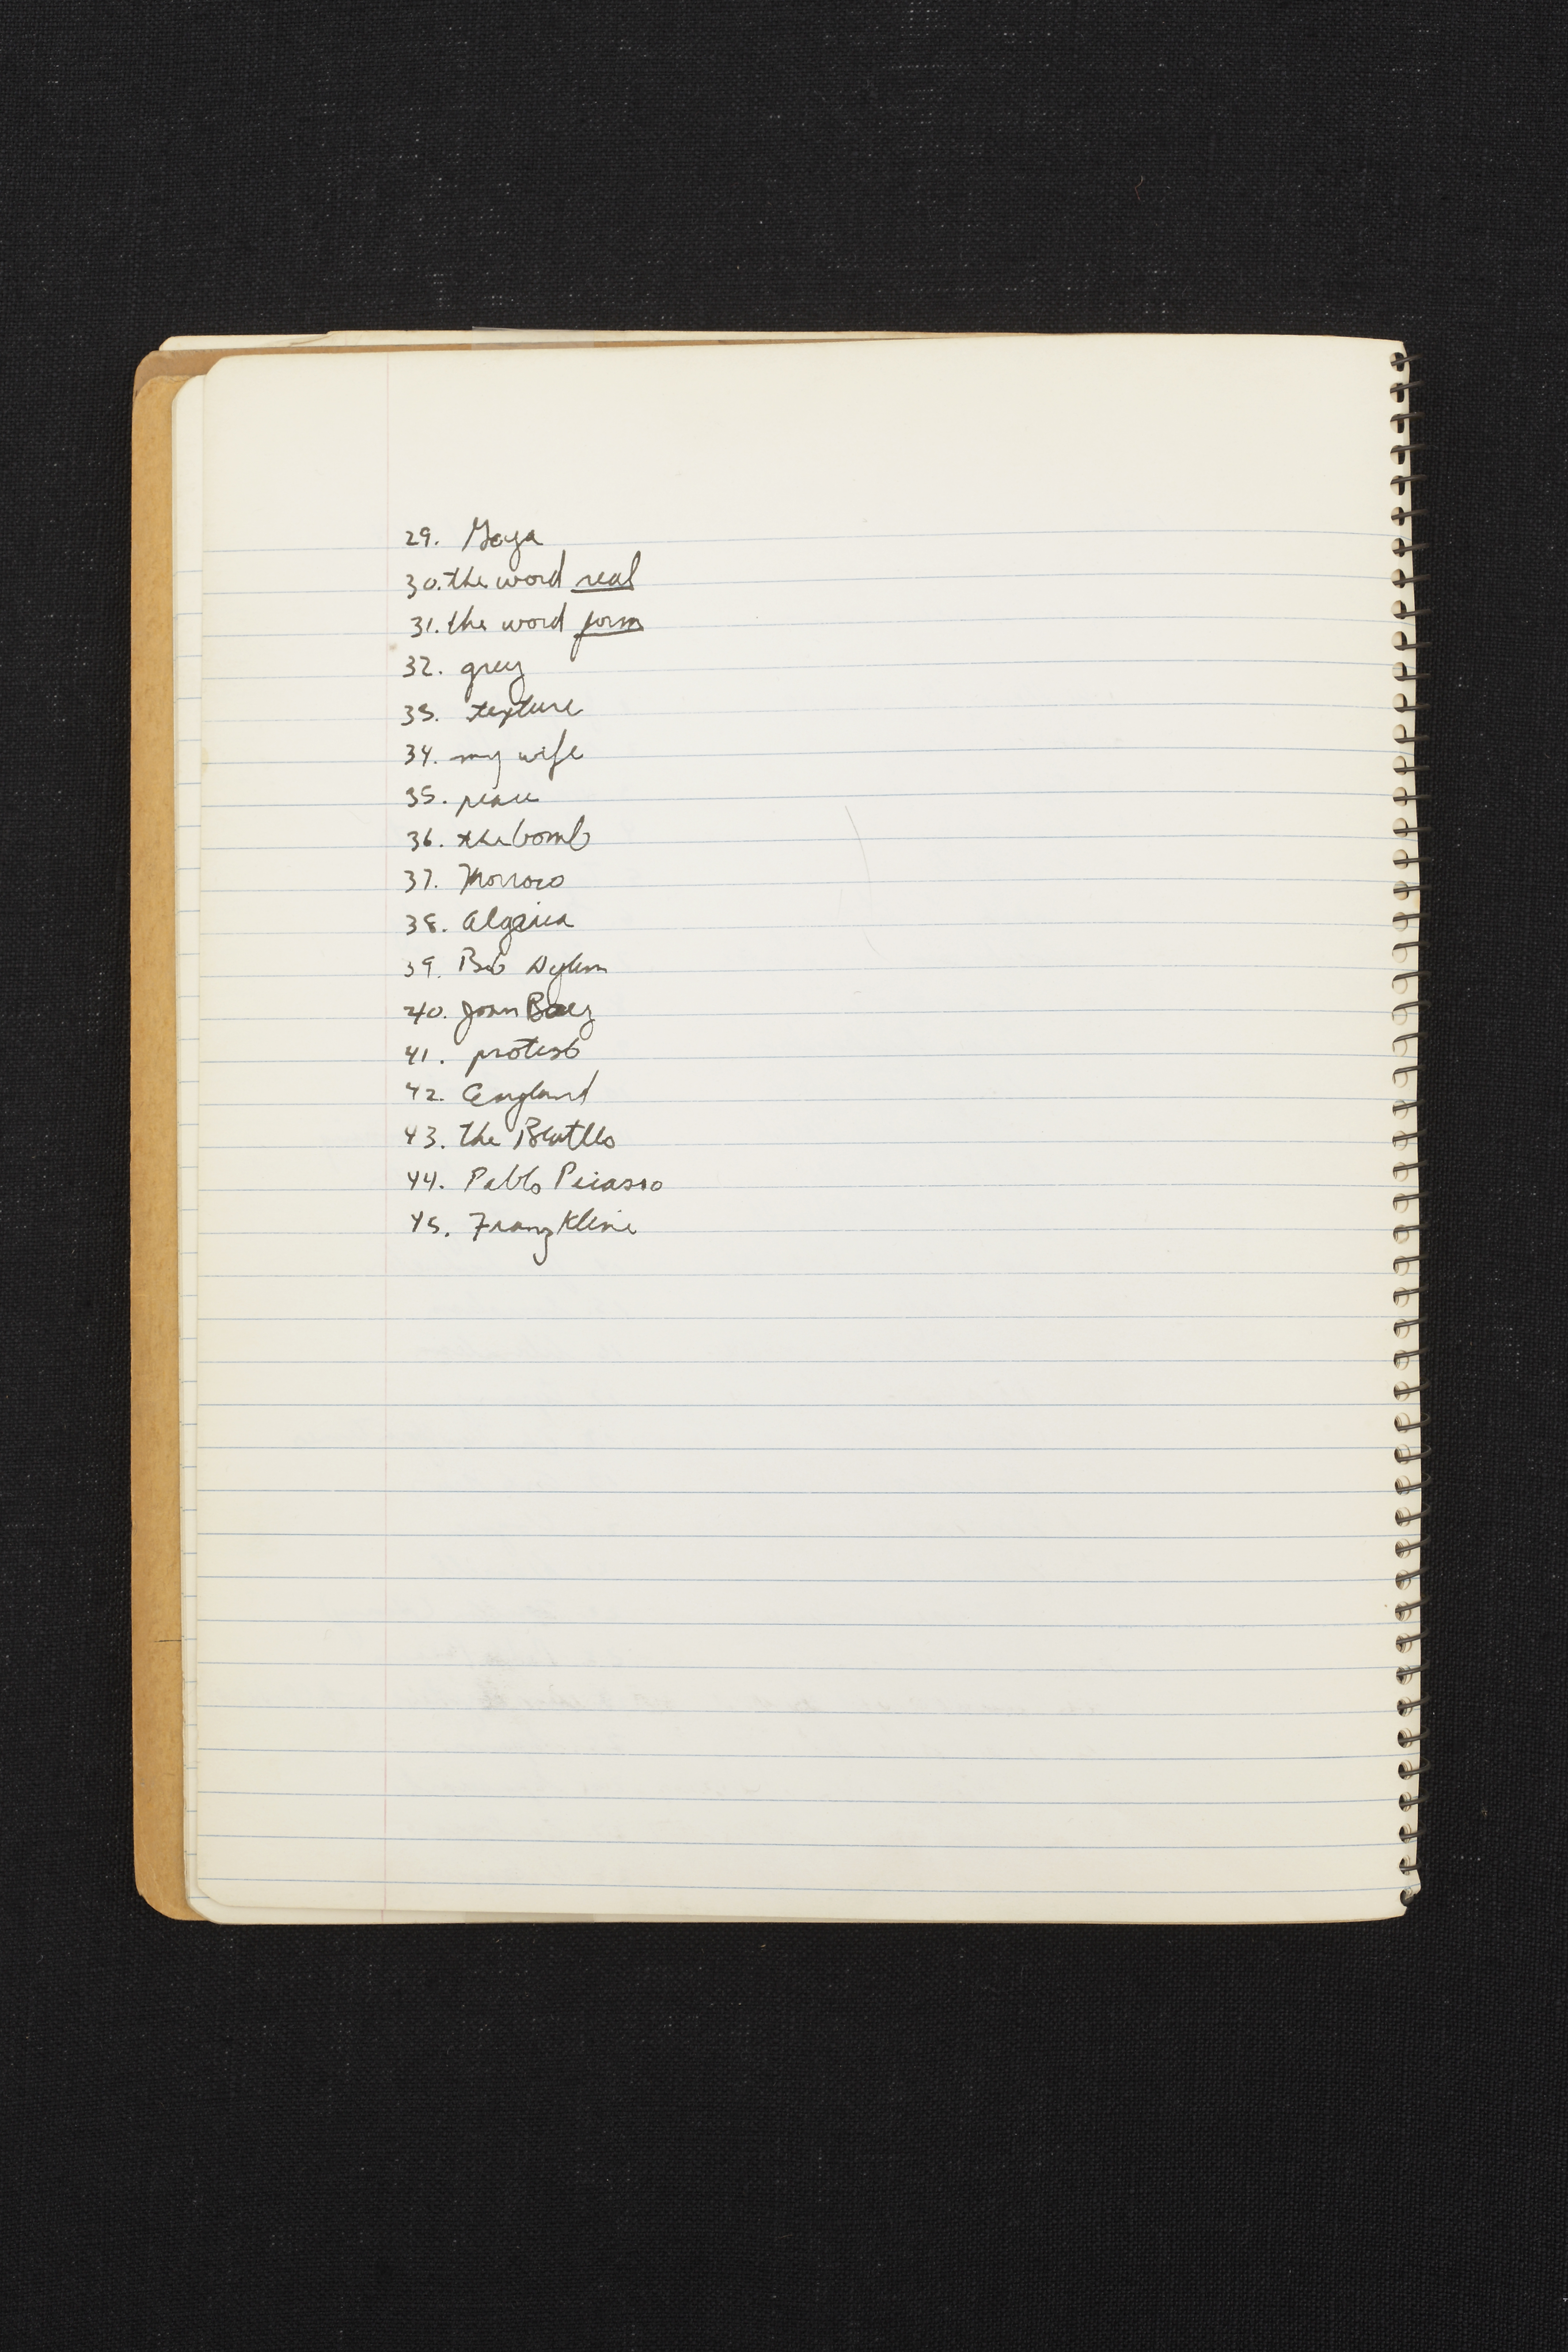 29. Goya
30. the word real
31. the word form
32. grey
33. texture
34. my wife
35. peace
36. the bomb
37. Morroco
38. Algeria
39. Bob Dylan
40. Joan Baez
41. protest
42. England
43. the Beatles
44. Pablo Picasso
45. Franz Kline